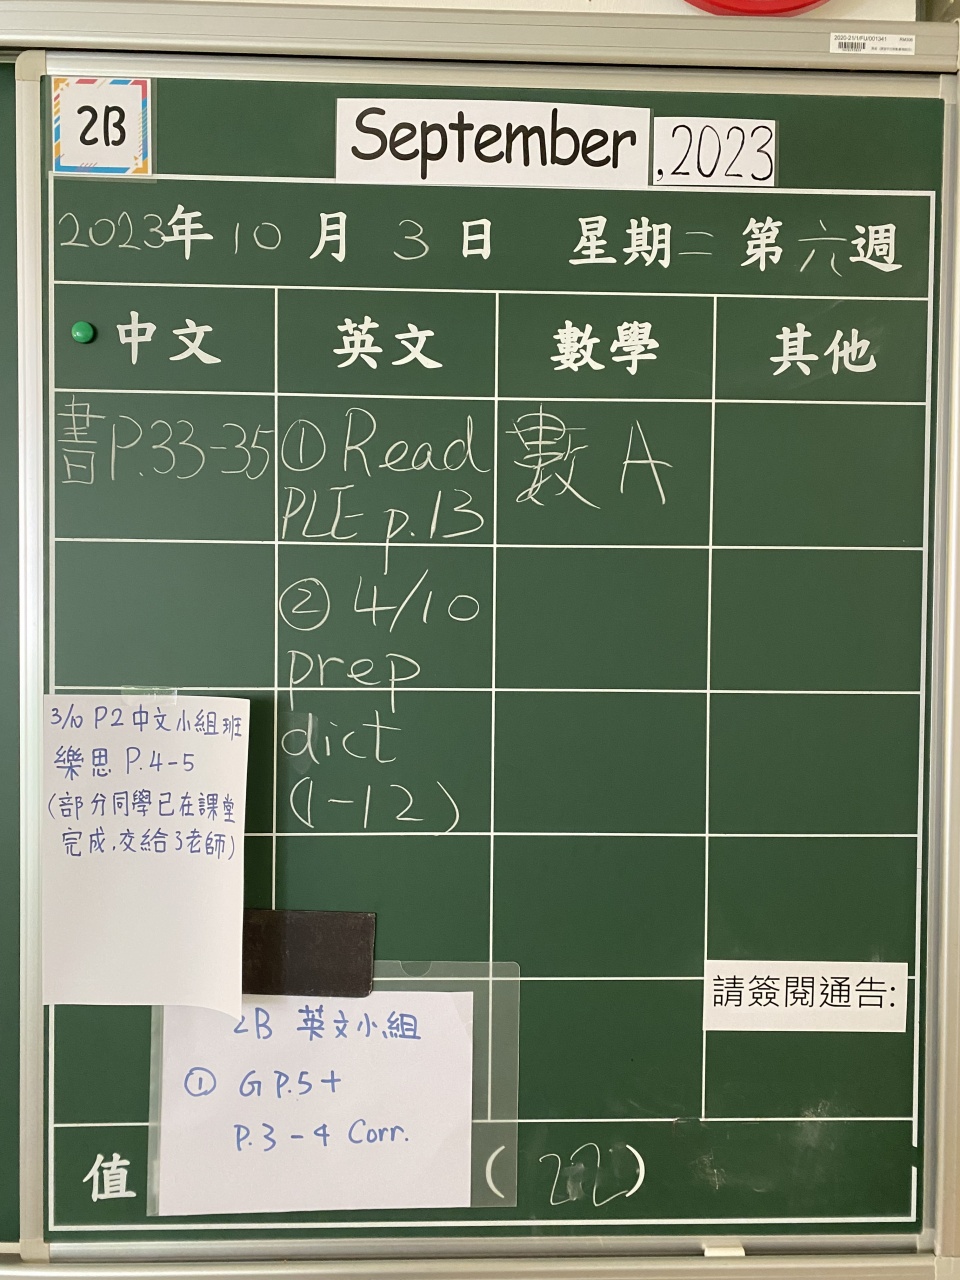 2020-21/1/FU/001341
2B
September ,2023
2023年10月3日 星期二 第六週
中文 英文 數學 其他
書P.33-35
① Read
PLE p.13
② 4/10
prep
dict
(1-12)
數 A
3/10 P2 中文小組班
樂思 P.4-5
(部分同學已在課堂
完成,交給3老師)
請簽閱通告:
2B 英文小組
① G P.5+
P.3-4 Corr.
值 (22)